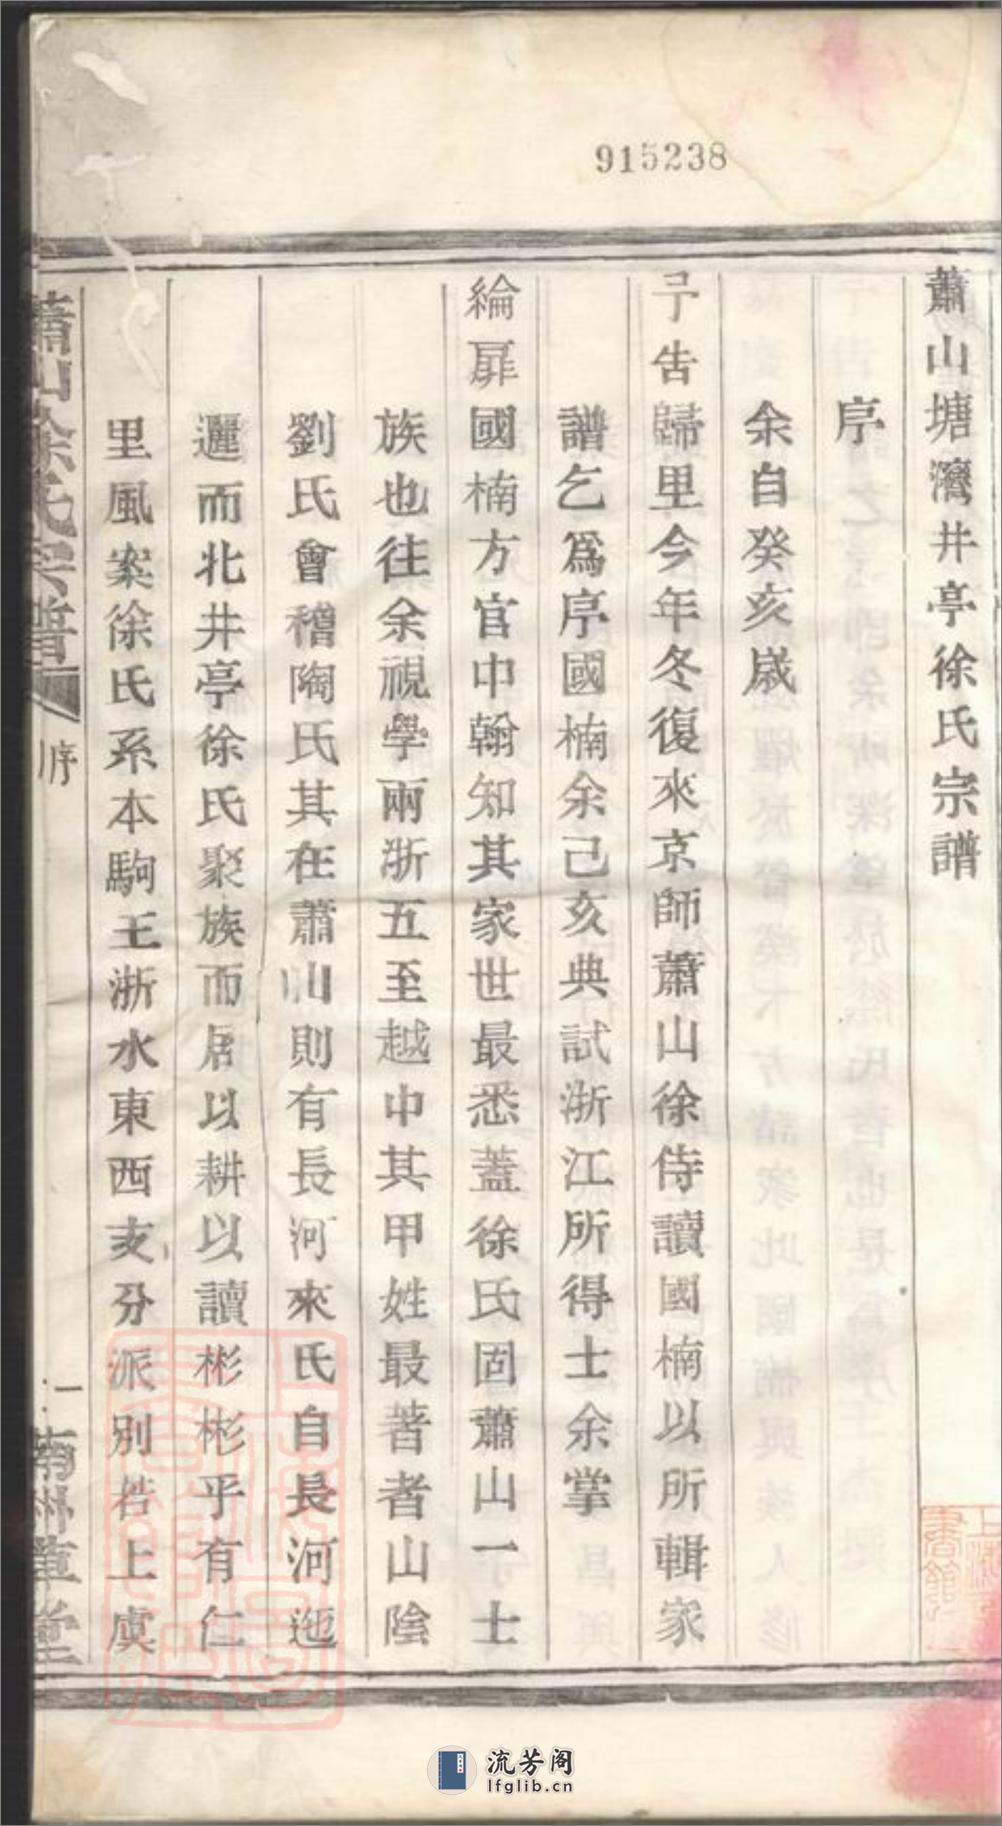 915238
蕭山塘灣井亭徐氏宗譜
序
余自癸亥歲
予告歸里今年冬復來京師蕭山徐侍讀國楠以所輯家
譜乞爲序國楠余己亥典試浙江所得士余掌
綸扉國楠方官中翰知其家世最悉蓋徐氏固蕭山一士
族也往余視學兩浙五至越中其甲姓最著者山陰
劉氏會稽陶氏其在蕭山則有長河來氏自長河迤
邐而北井亭徐氏聚族而居以耕以讀彬彬乎有仁
里風案徐氏系本駒王浙水東西支分派別若上虞
蕭山徐氏宗譜
序
一
南州草堂
流芳阁
lfglib.cn